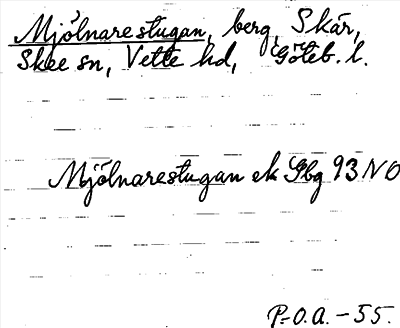 Mjölnarestugan, berg, Skär,
Skee sn, Vette hd, Göteb. l.
Mjölnarestugan ek Gbg 93 NO
P.-O.A. -55.